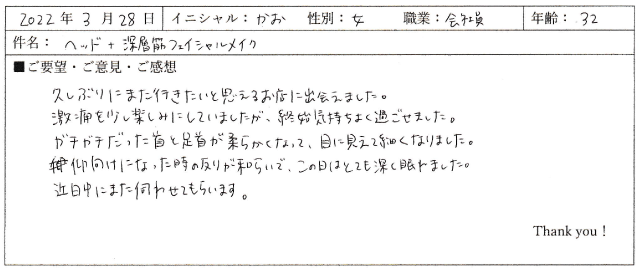 2022年 3月 28日 イニシャル：かお 性別：女 職業：会社員 年齢：32
件名：ヘッド + 深層筋フェイシャルメイク
■ご要望・ご意見・ご感想
久しぶりにまた行きたいと思えるお店に出会えました。
激痛を少し楽しみにしていましたが、終始気持ちよく過ごせました。
ガチガチだった首と足首が柔らかくなって、目に見えて細くなりました。
仰向けになった時の反りが和らいで、この日はとても深く眠れました。
近日中にまた伺わせてもらいます。
Thank you！